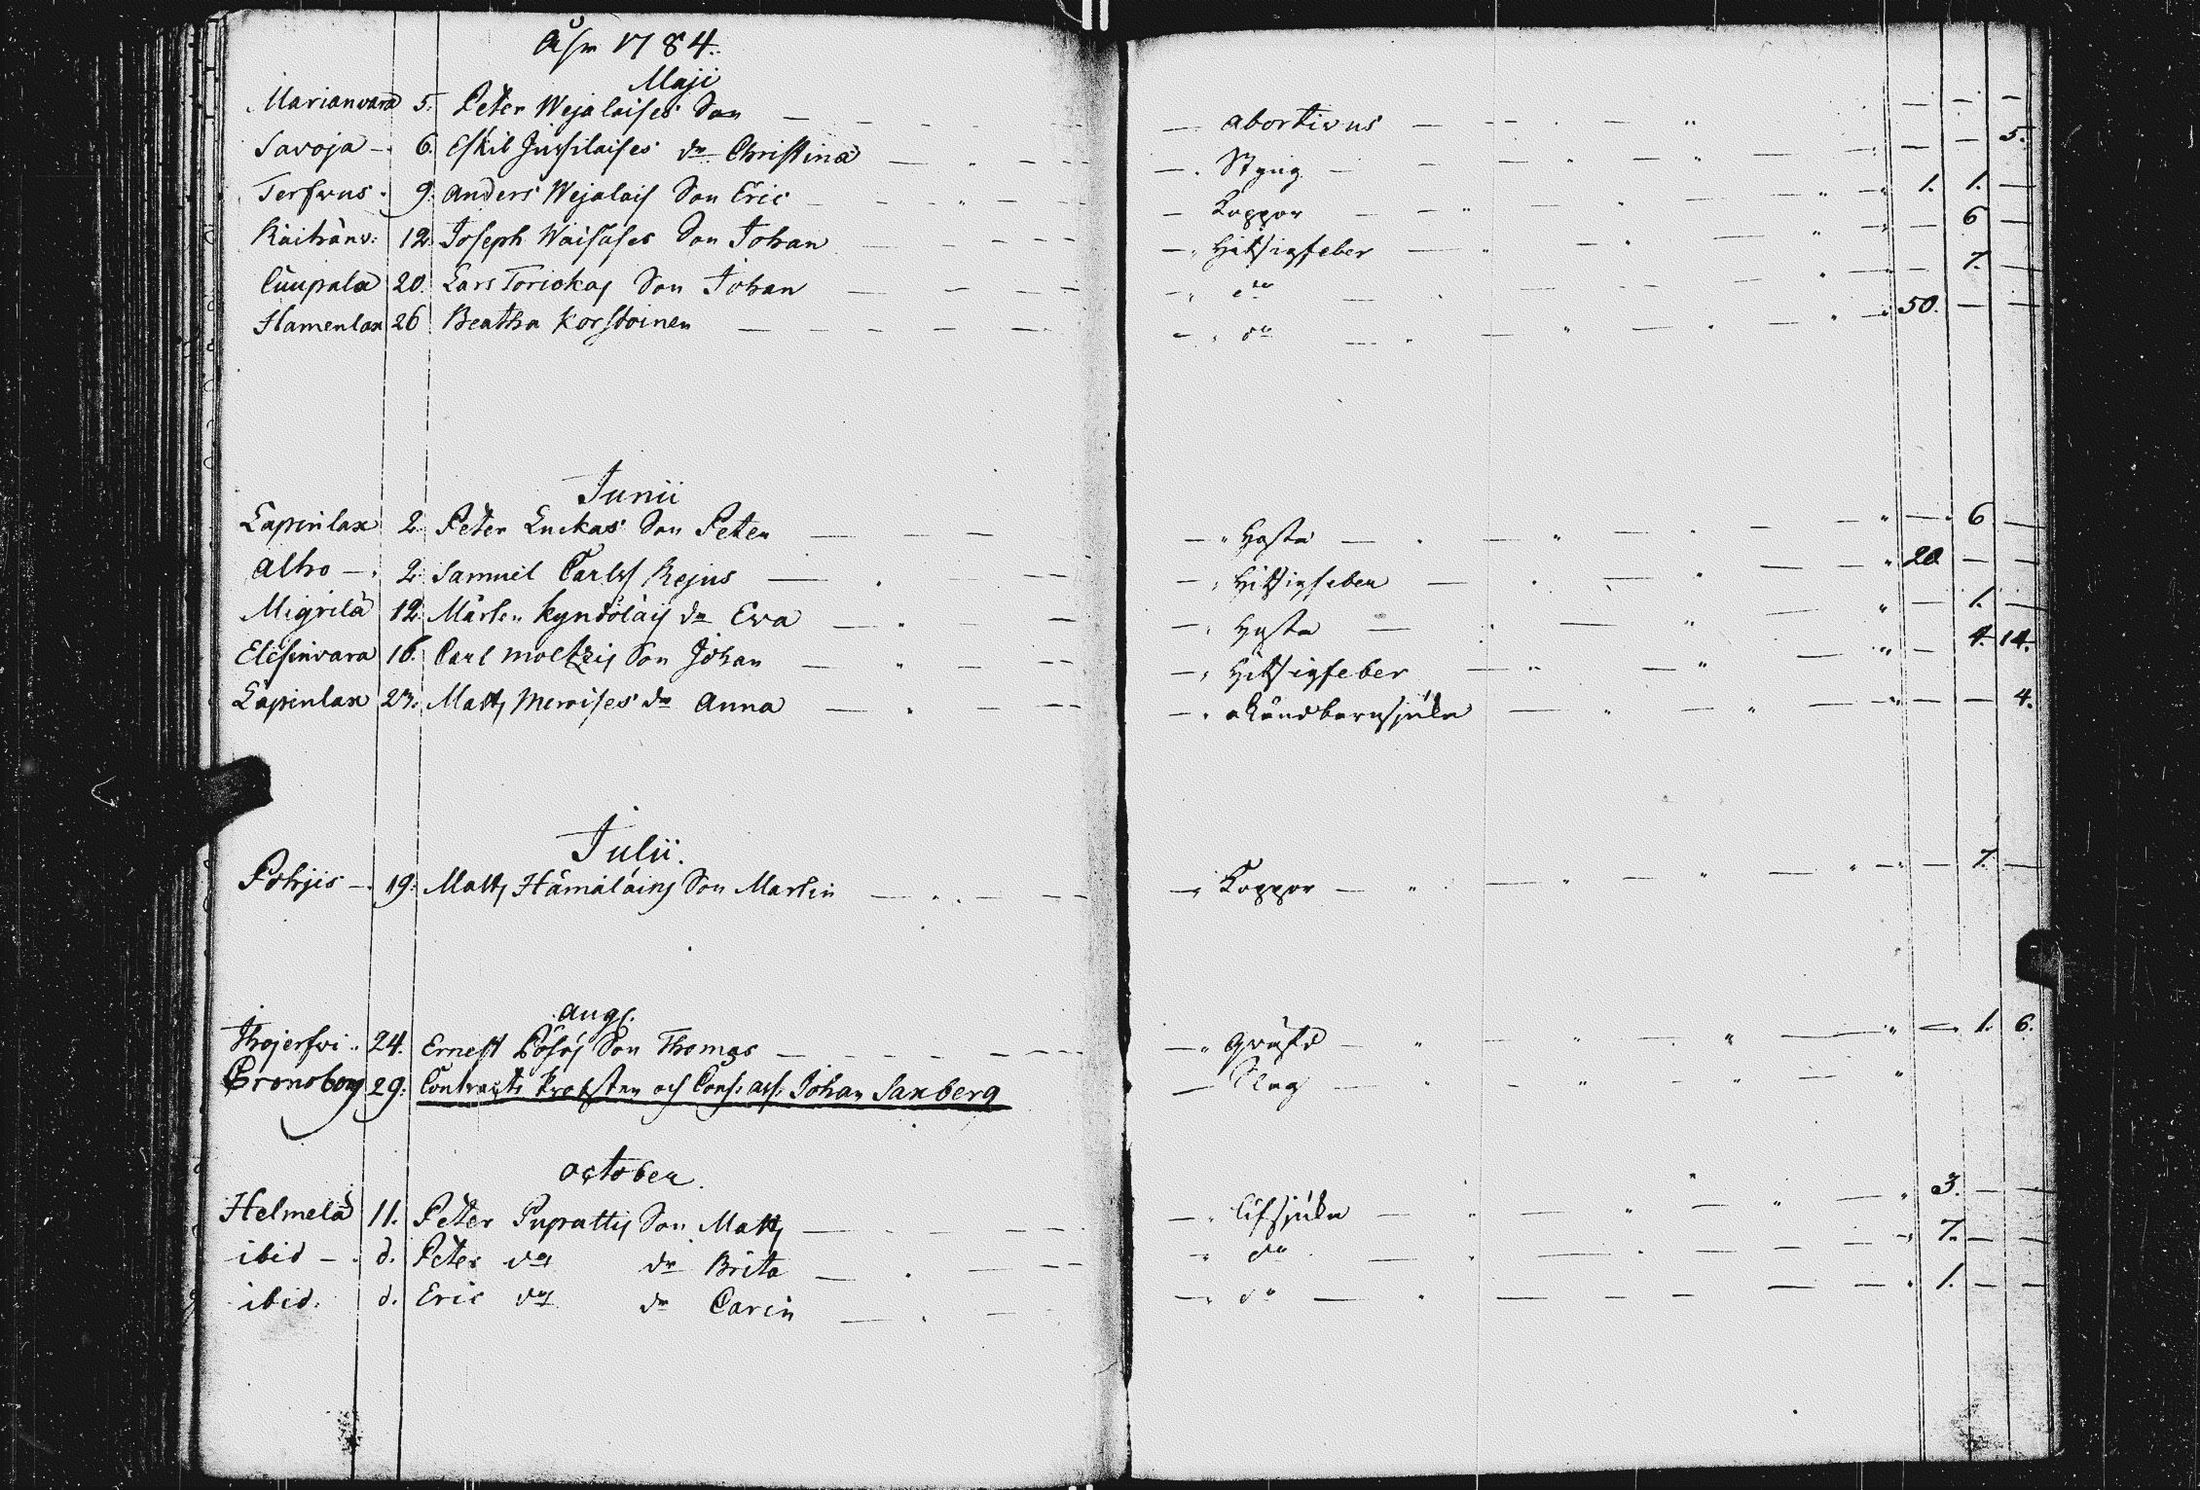 Åhr 1784.
Maji
Marianvara 5. Peter Wejalaises Son — abortivus — — —
Savoja — 6. Eskil Jussilaises dr Christina — Styng — — — 5.
Terfwus 9. Anders Wejalais Son Eric — Koppor — 1. 1. —
Kaihänv: 12. Joseph Waisases Son Johan — Hitsigfeber — — 6 —
Cuupala 20. Lars Torickas Son Johan — do — — 7. —
Hamenlax 26 Beatha Korstoinen — do — 50. — —
Junii
Lapinlax 2. Peter Luckas Son Peter — Hosta — — 6 —
Alho — 2. Samuel Carlss Rejus — Hitsigfeber — 20 — —
Migrilä 12. Mårten Kyndöläis dr Ewa — Hosta — — 1. —
Elisinvara 16. Carl Moltzis Son Johan — Hitsigfeber — — 4. 14.
Lapinlax 23. Matts dr Anna — okändbarnsjuka — — — 4.
Julii.
Pohjis — 19. Matts Hämäläins Son Martin — Koppor — — 7. —
Aug.
24. Ernest Pösös Son Thomas — — 1. 6.
Cronoborg 29. Contracts Prosten och Cons: ass: Johan Saxberg — Slag —
October.
Helmelä 11. Peter Puprattis Son Matts — lifsjuka — 3. — —
ibid — d. Peter ds dr Brita — do — 7. — —
ibid. d. Eric ds dr Carin — do — 1. — —